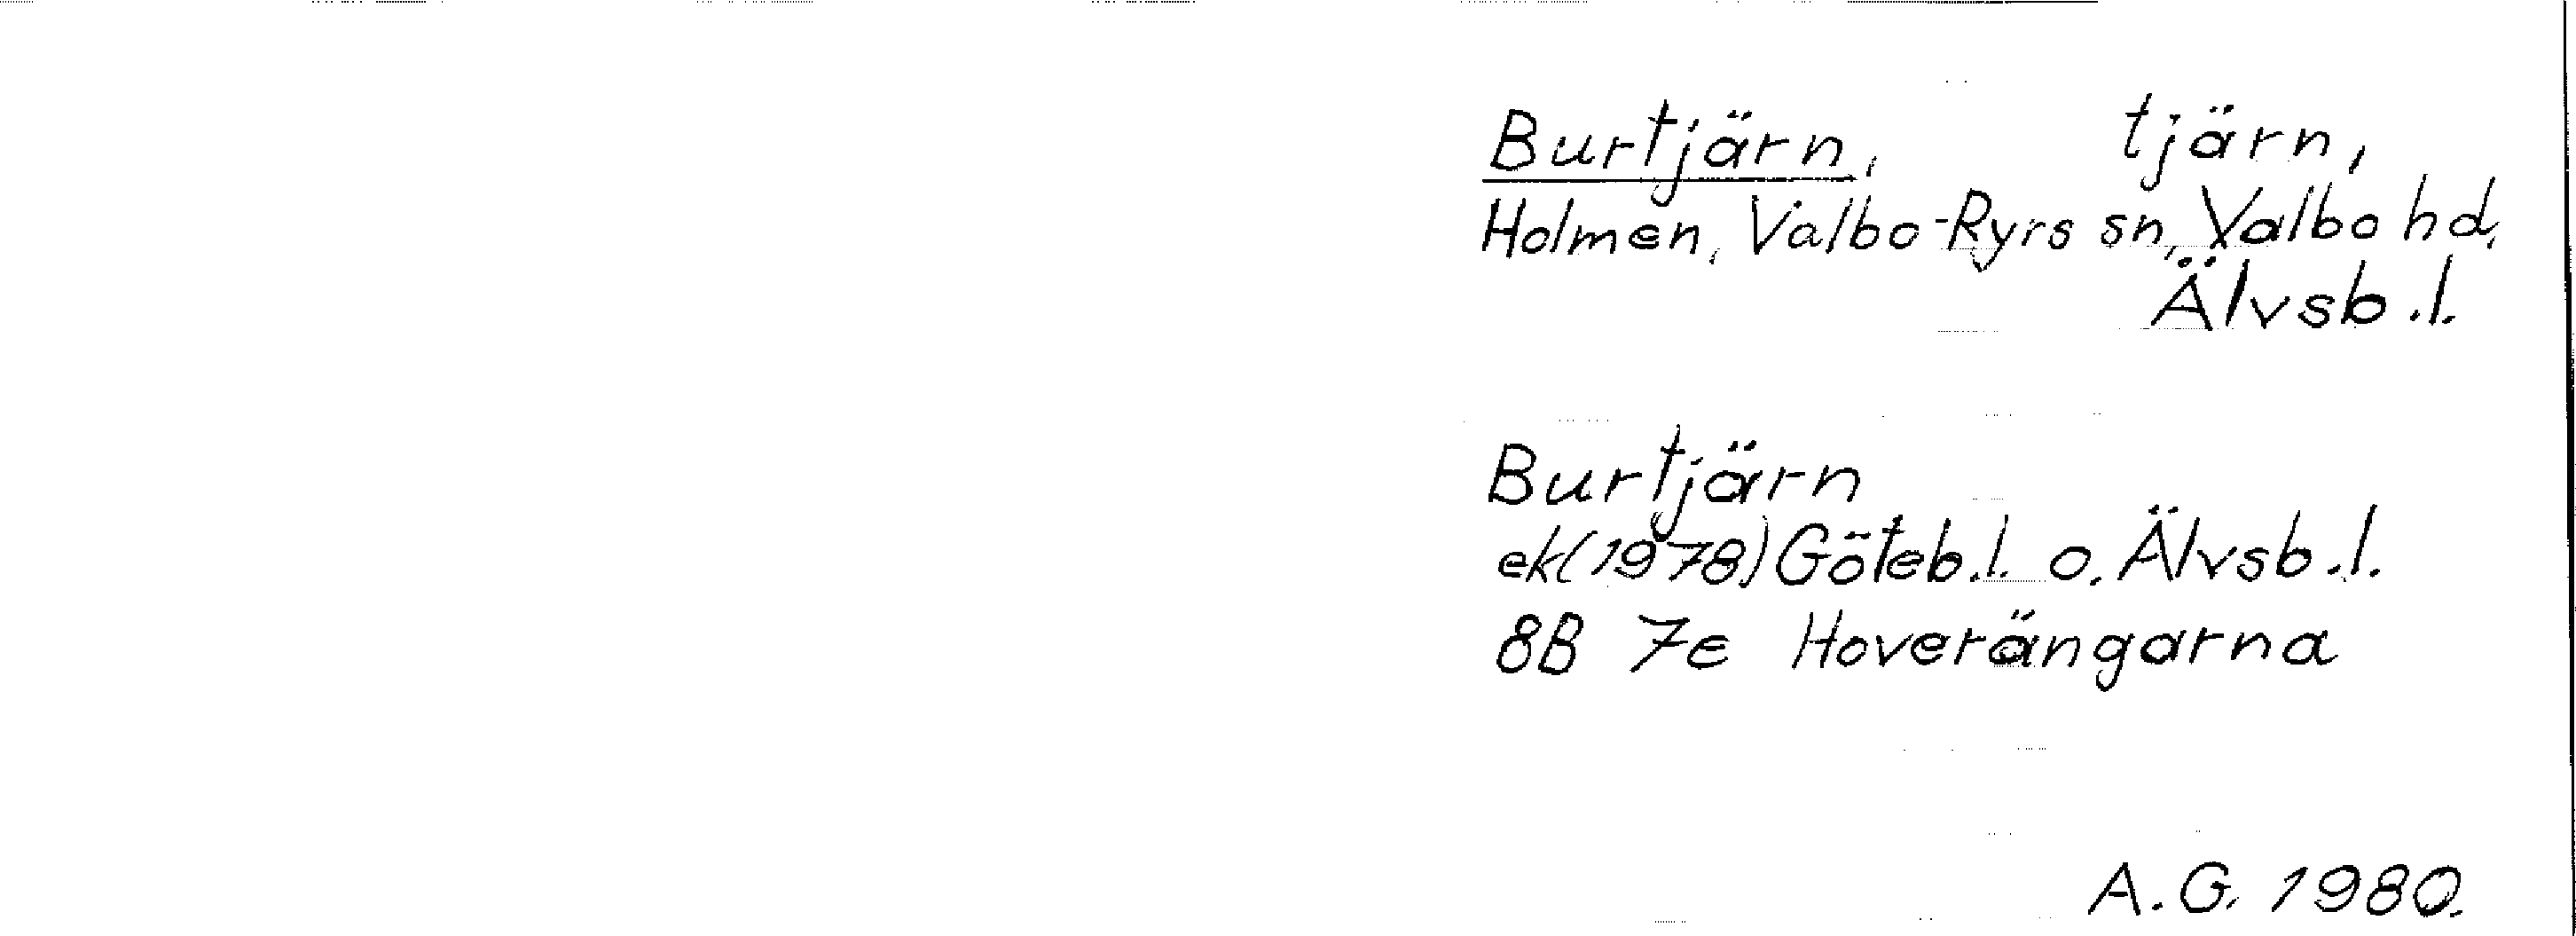 Burtjärn, tjärn,
Holmen, Valbo-Ryrs sn, Valbo hd,
Älvsb.l.
Burtjärn
ek(1978) Göteb.l. o. Älvsb.l.
8B 7e Hoverängarna
A.G. 1980.